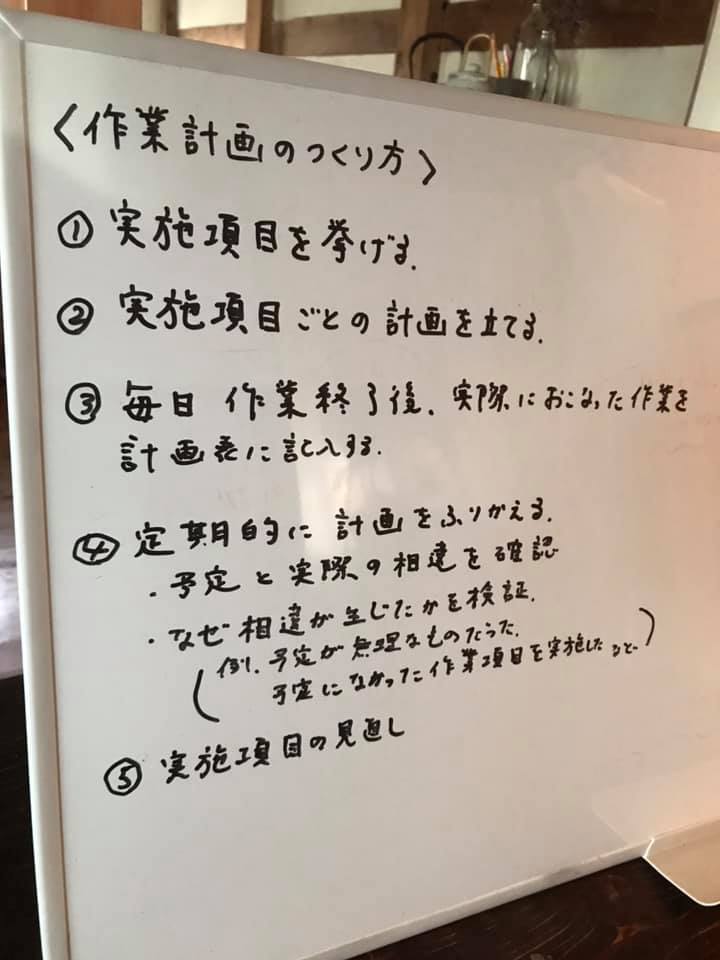 〈作業計画のつくり方〉
① 実施項目を挙げる.
② 実施項目ごとの計画を立てる.
③ 毎日 作業終了後、実際におこなった作業を
計画表に記入する.
④ 定期的に計画をふりかえる.
・予定と実際の相違を確認
・なぜ相違が生じたかを検証.
(例.予定が無理なものだった.
予定になかった作業項目を実施した )
⑤ 実施項目の見直し